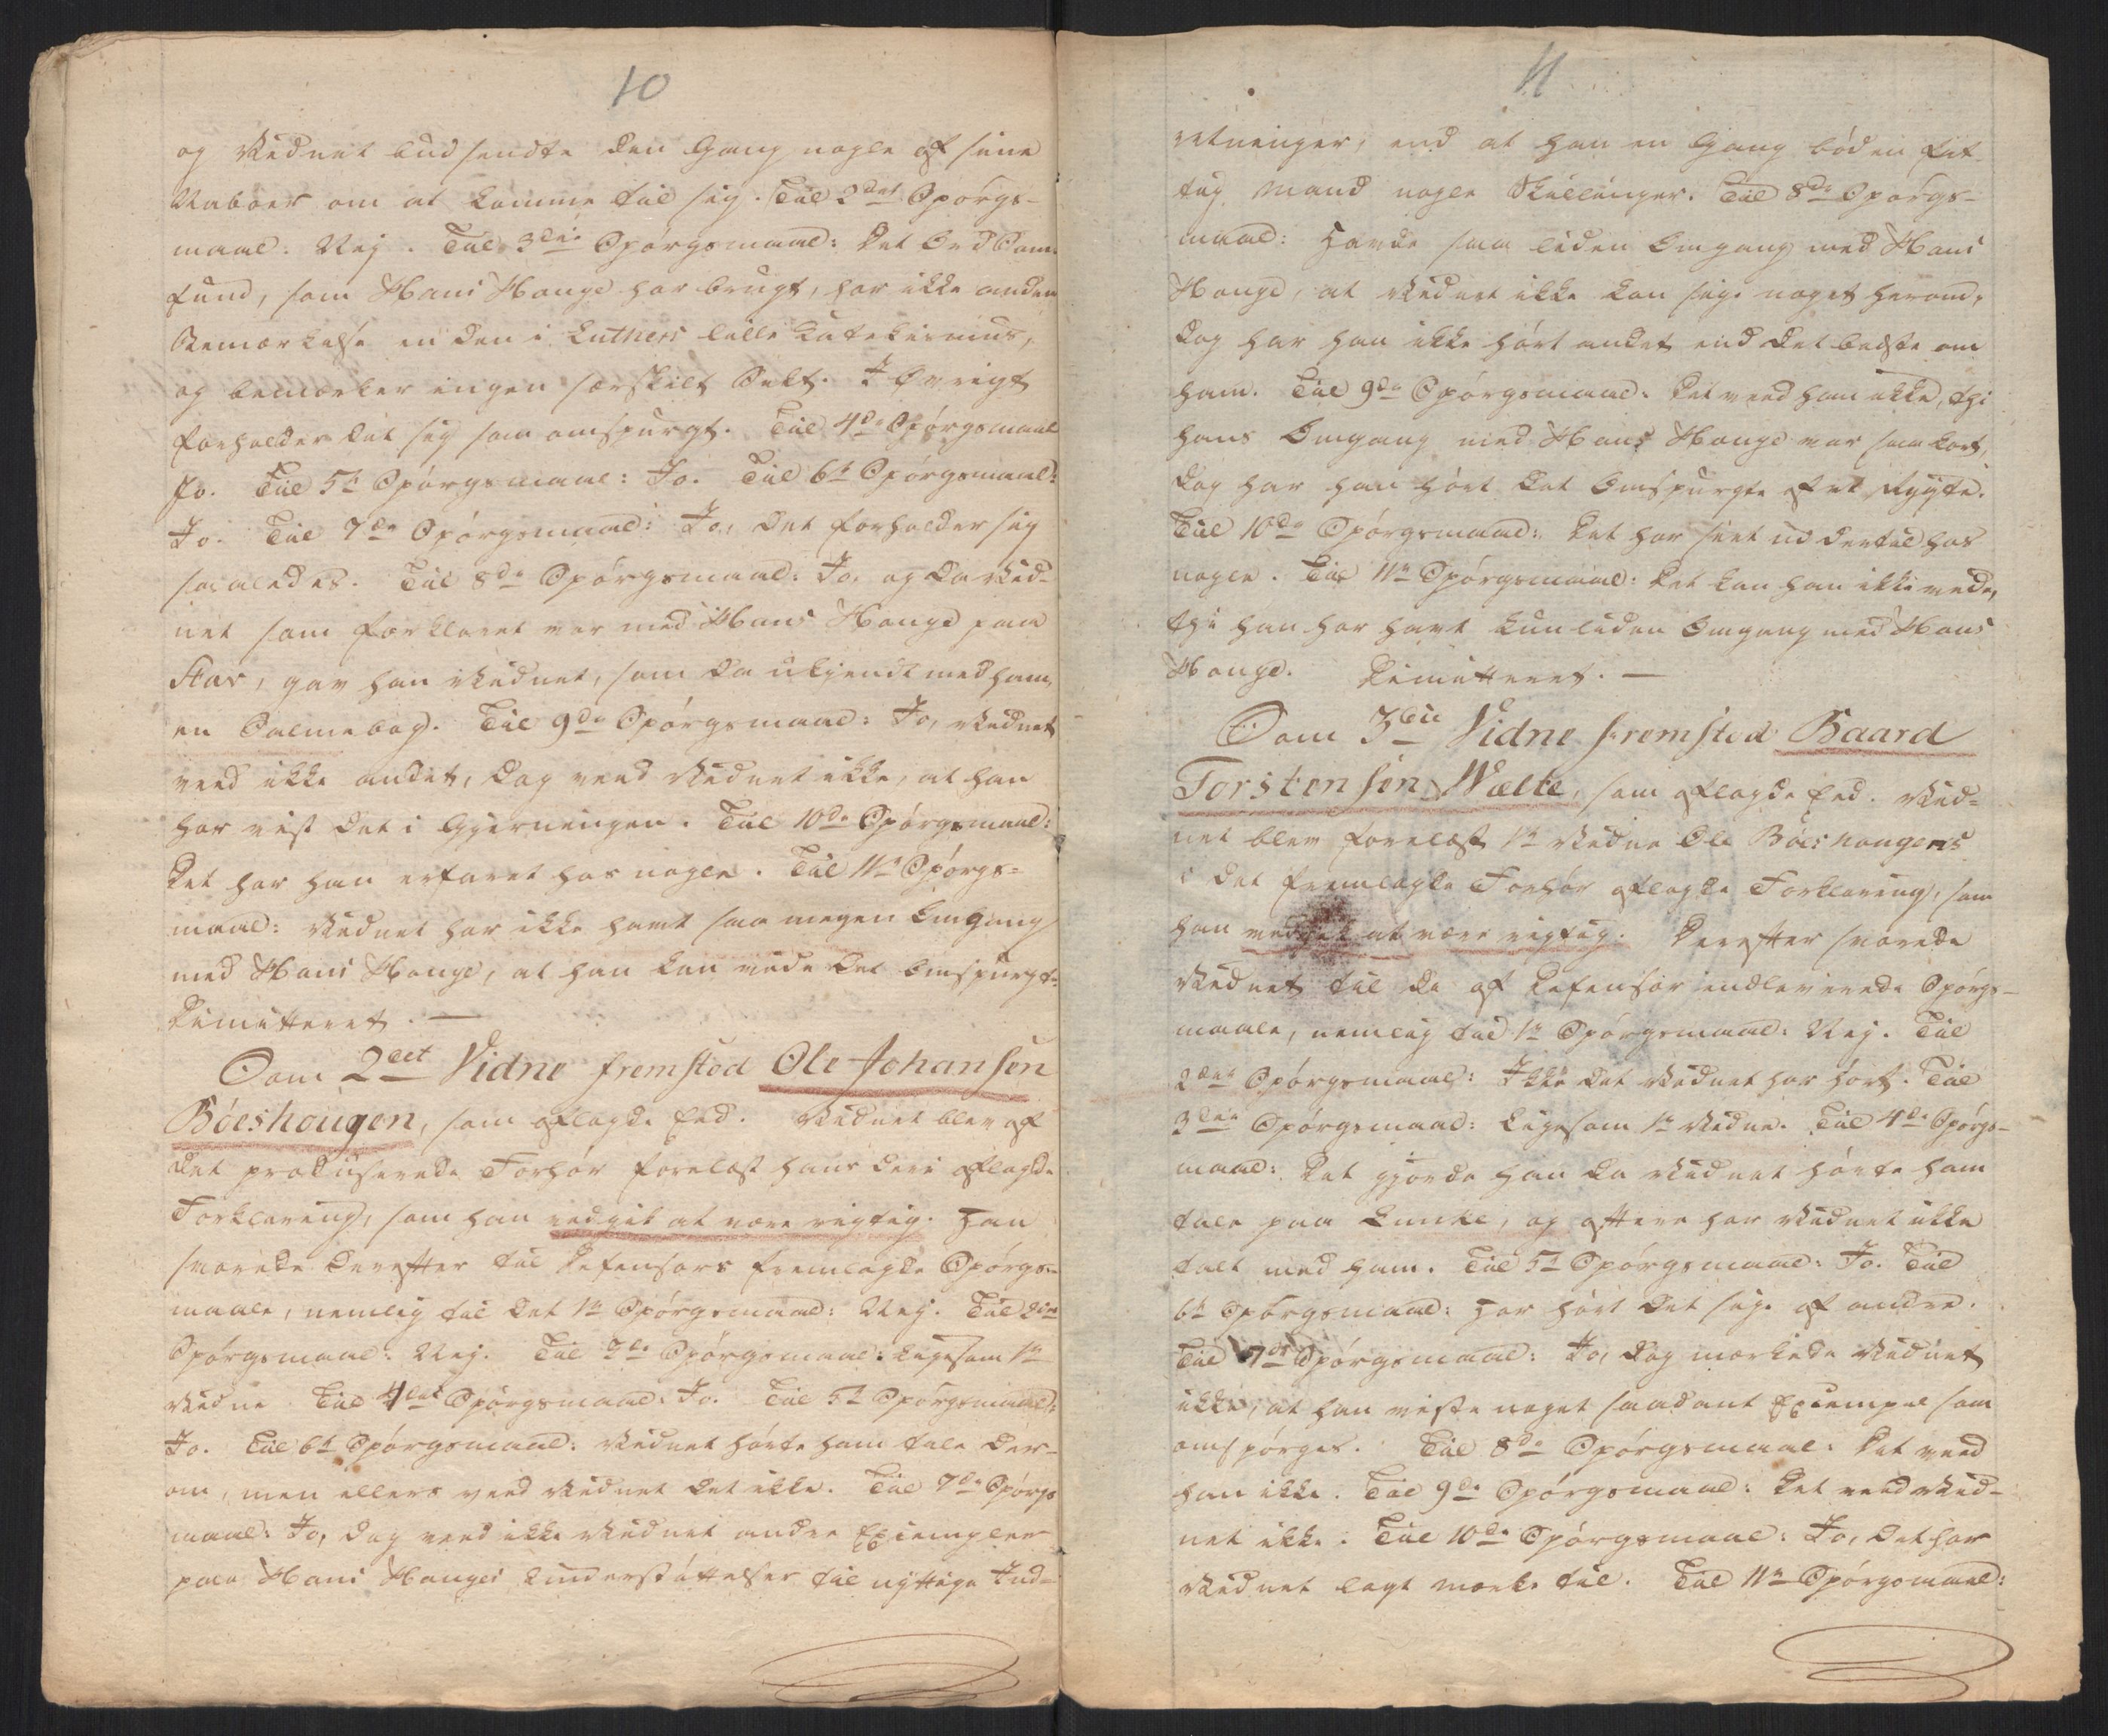 10
og Vidnet budsendte den Gang nogle af sine
Naboer om at komme til sig. Til 2det Spørgs-
maal: Nej. Til 3die Spørgsmaal: Det Ord Sam-
fund, som Hans Hauge har brugt, har ikke anden
Bemærkelse en den i Luthers lille Katekismus,
og bemærker ingen særskilt Sekt. I Øvrigt
forholder det sig som omspurgt. Til 4de Spørgsmaal
Jo. Til 5te Spørgsmaal: Jo. Til 6te Spørgsmaal:
Jo. Til 7de Spørgsmaal: Jo, det forholder sig
saaledes. Til 8de Spørgsmaal: Jo, og da Vid-
net som forklaret var med Hans Hauge paa
, gav han Vidnet, som da ukjendt med ham,
en Salmebog. Til 9de Spørgsmaal: Jo, Vidnet
veed ikke andet, dog veed Vidnet ikke, at han
har vist det i Gjerningen. Til 10de Spørgsmaal:
Det har han erfaret hos nogle. Til 11te Spørgs-
maal: Vidnet har ikke havt saa megen Omgang
med Hans Hauge, at han kan vide det Omspurgte.
Dimitteret. —
Som 2det Vidne fremstod Ole Johansen
Bóeshougen, som aflagde Eed. Vidnet blev af
det producerede Forhør forelæst hans deri aflagde
Forklaring, som han vedgik at være rigtig. Han
svarede derefter til Defensors fremlagde Spørgs-
maale, nemlig til det 1te Spørgsmaal: Nej. Til 2det
Spørgsmaal: Nej. Til 3die Spørgsmaal: Ligesom 1te
Vidne. Til 4det Spørgsmaal: Jo. Til 5te Spørgsmaal:
Jo. Til 6te Spørgsmaal: Vidnet hørte ham tale der-
om, men ellers veed Vidnet det ikke. Til 7de Spørgs
maal: Jo, dog veed ikke Vidnet andre Exempler
paa Hans Hauges Understøttelser til nyttige Ind-
11
retninger, end at han en Gang bød en fat-
tig Mand nogle Skillinger. Til 8de Spørgs-
maal: Havde saa liden Omgang med Hans
Hauge, at Vidnet ikke kan sige noget herom,
dog har han ikke hørt andet end det bedste om
ham. Til 9de Spørgsmaal: Det veed han ikke, thi
hans Omgang med Hans Hauge var saa kort,
dog har han hørt det Omspurgte af et Rygte.
Til 10de Spørgsmaal: Det har seet ud dertil hos
nogle. Til 11te Spørgsmaal: Det kan han ikke vide,
thi han har havt kun liden Omgang med Hans
Hauge. Dimitteret. —
Som 3die Vidne fremstod Baard
Torstensen Wælte, som aflagde Eed. Vid-
net blev forelæst 1te Vidne Ole Bóeshougens
i det fremlagde Forhør aflagde Forklaring, som
han vedgik at være rigtig. Derefter svarede
Vidnet til de af Defensor indleverede Spørgs-
maale, nemlig til 1te Spørgsmaal: Nej. Til
2det Spørgsmaal: Ikke det Vidnet har hørt. Til
3die Spørgsmaal: Ligesom 1te Vidne. Til 4de Spørgs-
maal: Det gjorde han da Vidnet hørte ham
tale paa Lunke, og oftere har Vidnet ikke
talt med ham. Til 5te Spørgsmaal: Jo. Til
6te Spørgsmaal: Har hørt det sige af andre.
Til 7de Spørgsmaal: Jo, dog mærkede Vidnet
ikke, at han viste noget saadant Exempel som
omspørges. Til 8de Spørgsmaal: Det veed
han ikke. Til 9de Spørgsmaal: Det veed Vid-
net ikke. Til 10de Spørgsmaal: Jo, det har
Vidnet lagt Mærke til. Til 11te Spørgsmaal: